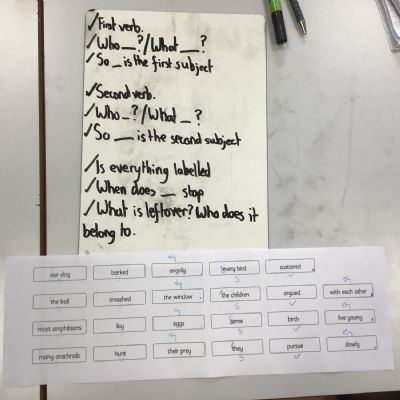 ✓First verb.
✓Who __?/What __?
✓So _ is the first subject
✓Second verb.
✓Who _?/What _?
✓So __ is the second subject
✓Is everything labelled
✓When does __ stop
✓What is leftover? Who does it
belong to.
our dog barked angrily every bird scattered
the ball smashed the window the children argued with each other
most amphibians lay eggs some birth live young
many arachnids hunt their prey they pursue slowly